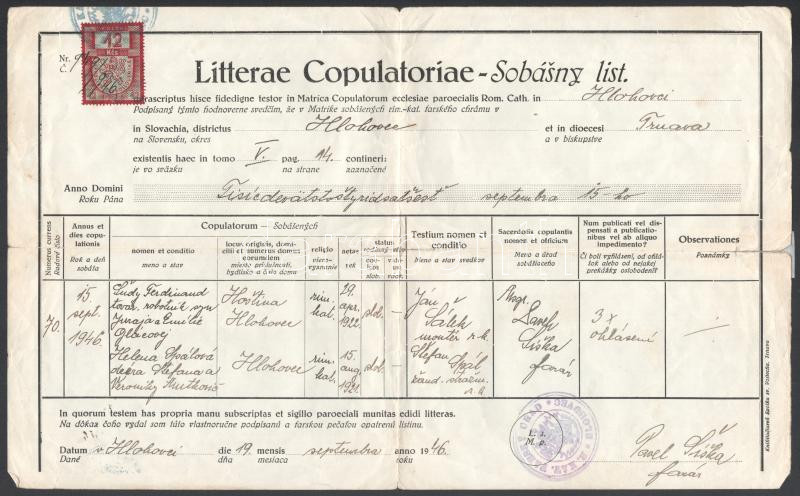 Nr.
Č.
12
Kčs
1946
Litterae Copulatoriae - Sobášny list.
Infrascriptus hisce fidedigne testor in Matrica Copulatorum ecclesiae paroecialis Rom. Cath. in Hlohovci
Podpísaný týmto hodnoverne svedčím, že v Matrike sobášených rím.-kat. farského chrámu v
in Slovachia, districtus Hlohovec et in dioecesi Trnava
na Slovensku, okres a v biskupstve
existentis haec in tomo V. pag. 14. contineri:
je vo sväzku na strane zaznačené
Anno Domini Tisícdeväťstoštyridsaťšesť septembra 15-ho
Roku Pána
Numerus currens
Radové číslo
Annus et dies copulationis
Rok a deň sobáša
Copulatorum - Sobášených
nomen et conditio
meno a stav
locus originis, domicilii et numerus domus eorumdem
miesto príslušnosti, bydlisko a číslo domu
religio
vierovyznanie
aetas
vek
status
rodinný stav
Testium nomen et conditio
Meno a stav svedkov
Sacerdotis copulantis nomen et officium
Meno a úrad sobášiaceho
Num publicati vel dispensati a publicationibus vel ab aliquo impedimento?
Či boli vyhlásení, od ohlášok alebo od nejakej prekážky oslobodení?
Observationes
Poznámky
70.
15. sept. 1946.
Šúdy Ferdinand
továr. robotník syn
Juraja a Emílie
Glácovej
Hoština
Hlohovec
rím. kat.
29. apr. 1922.
slob.
Ján
Šálek
montér r.k.
Msgr.
Pavel
Šiška
farár
3 x
ohlásení
Helena Spálová
dcéra Štefana a
Veroniky
Hlohovec
rím. kat.
15. aug. 1921.
slob.
Štefan Spál
In quorum testem has propria manu subscriptas et sigillo paroeciali munitas edidi litteras.
Na dôkaz čoho vydal som túto vlastnoručne podpísanú a farskou pečaťou opatrenú listinu.
L. s.
M. p.
Datum v Hlohovci die 19. mensis septembra anno 1946.
Dané dňa mesiaca roku
Pavel Šiška
farár